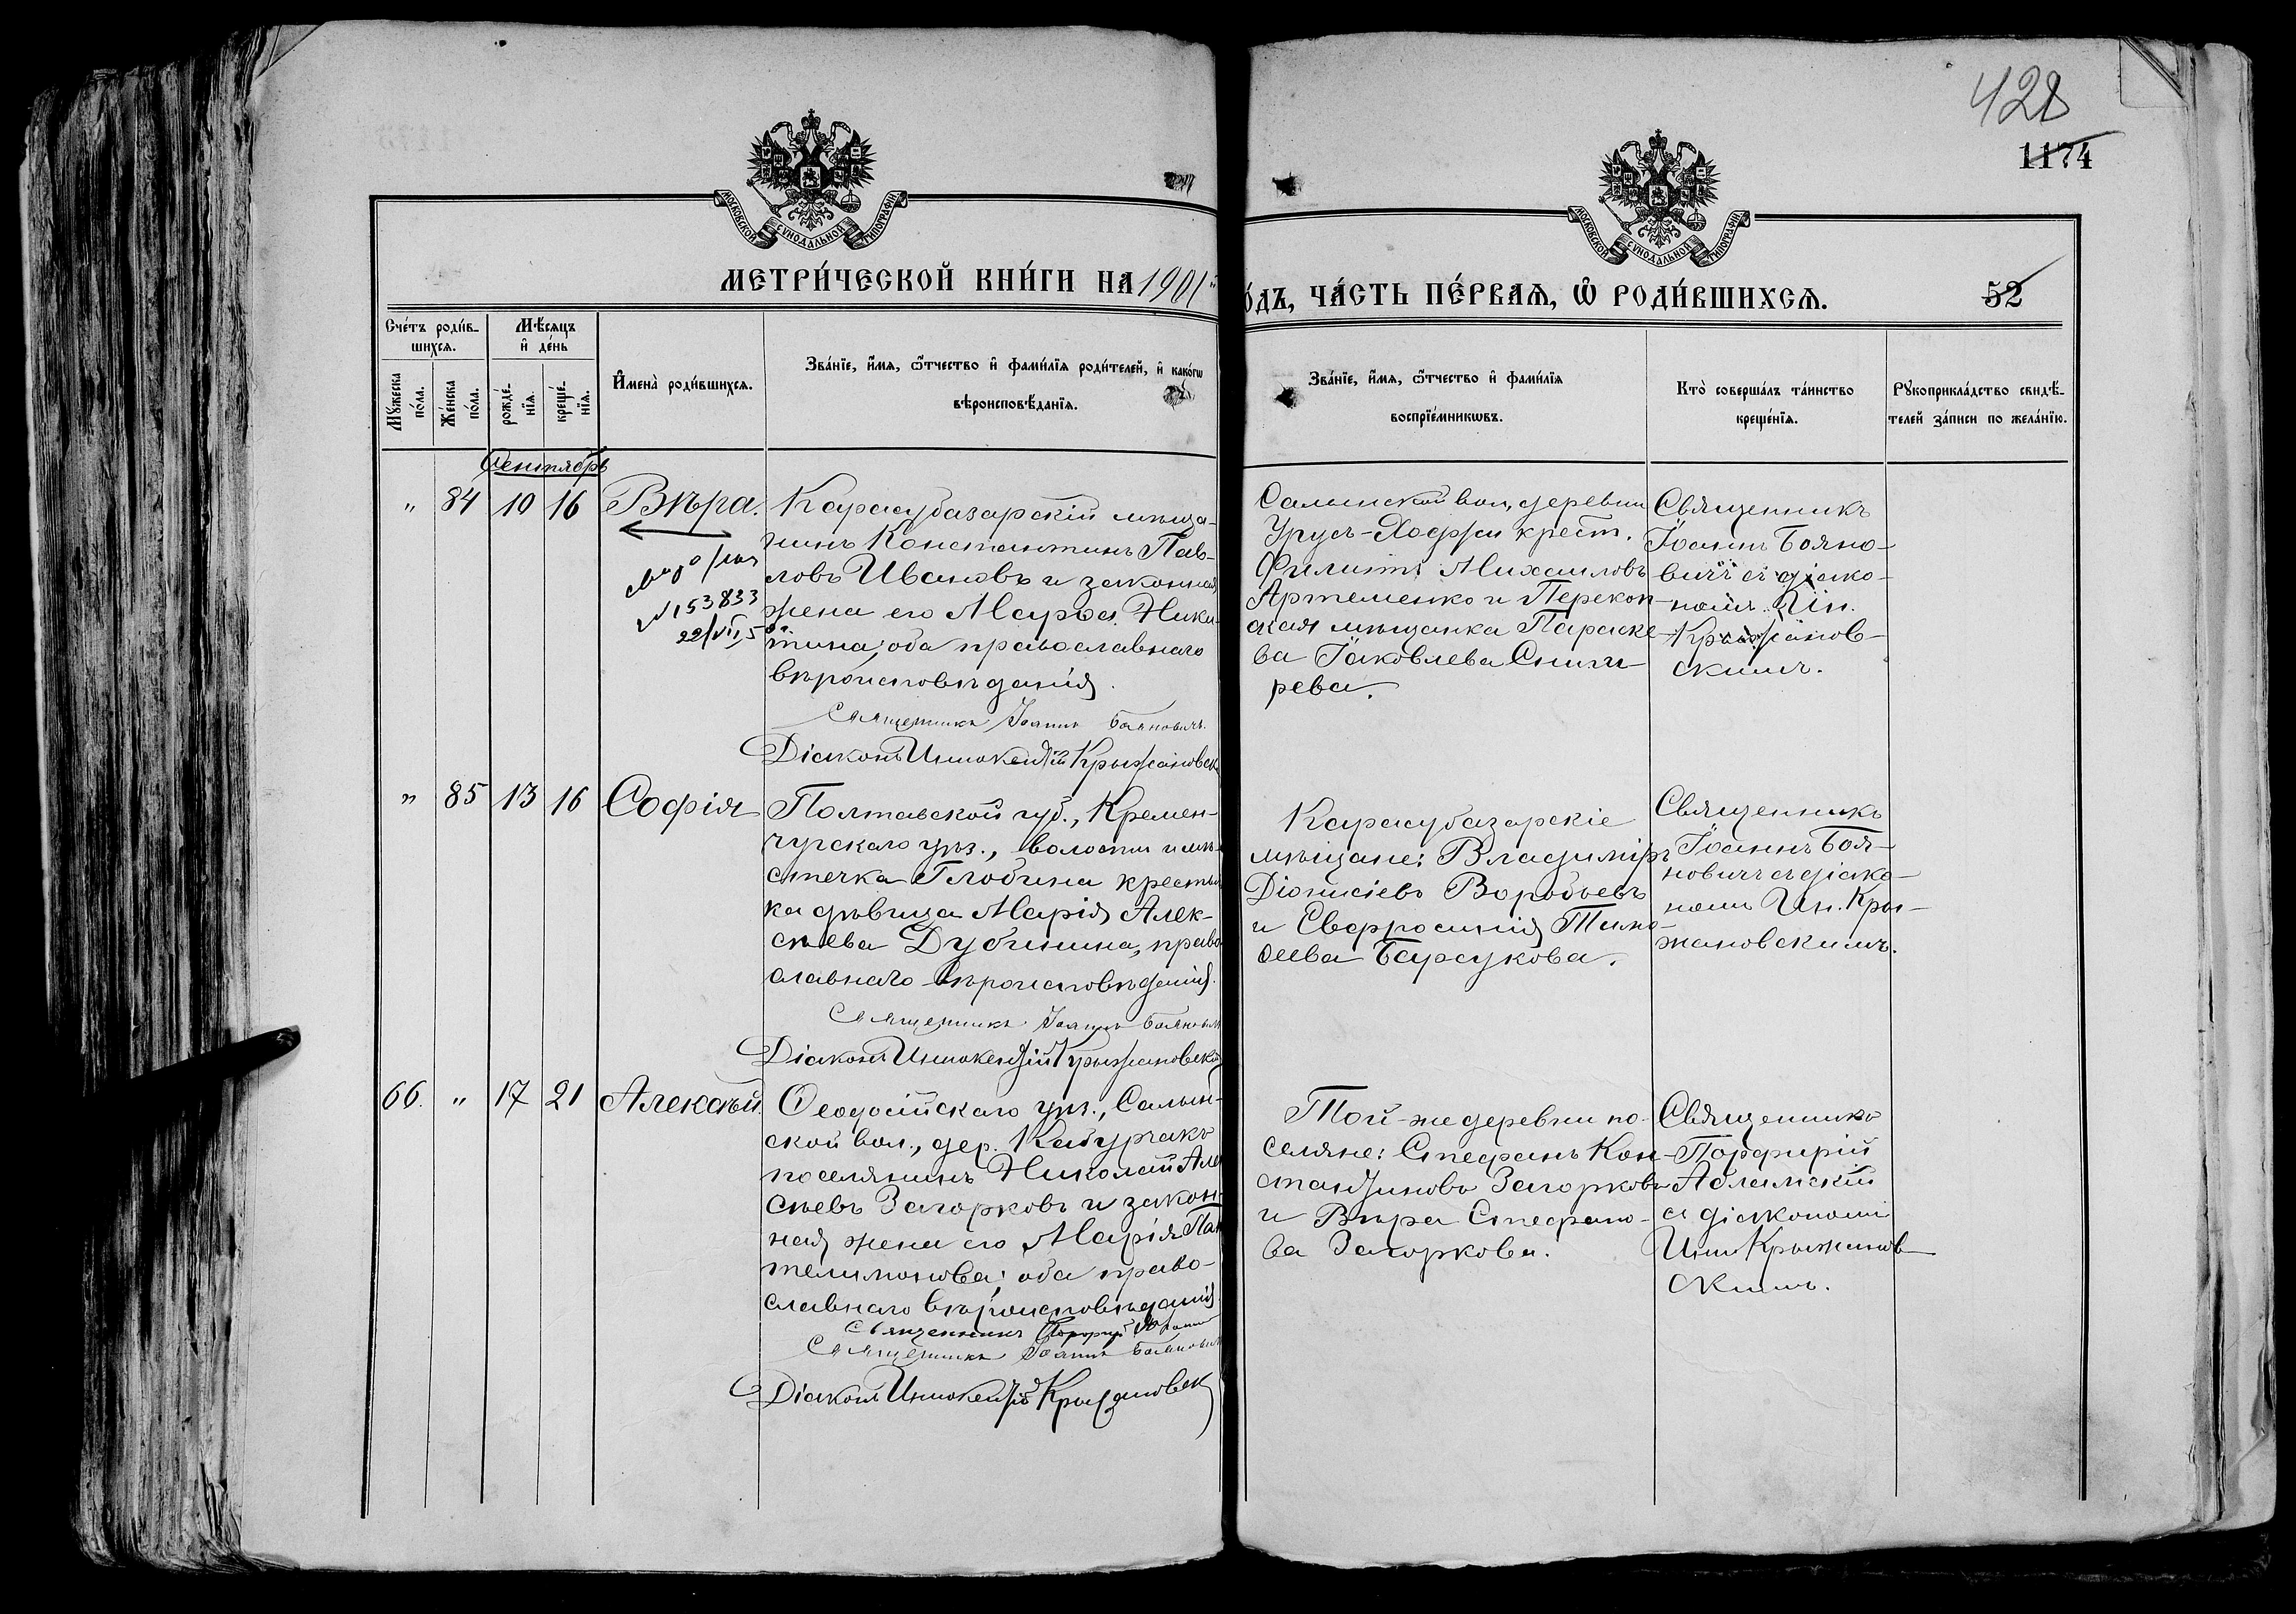 428
1174
МОСКОВСКОЙ СѴНОДАЛЬНОЙ ТИПОГРАФІИ
МОСКОВСКОЙ СѴНОДАЛЬНОЙ ТИПОГРАФІИ
МЕТРИ́ЧЕСКОЙ КНИ́ГИ НА 1901
О́ДЪ, ЧА́СТЬ ПЕ́РВАѦ, Ѽ РОДИ́ВШИХСѦ.
52
Счéтъ роди́в-
шихсѧ.
Мꙋ́жеска
по́ла.
Же́нска
по́ла.
Мѣ́сѧцъ
и҆ де́нь
рожде́-
нїѧ.
креще́-
нїѧ.
И҆мена̀ роди́вшихсѧ.
Зва́нїе, и҆́мѧ, ѻ҆́тчество и҆ фами́лїѧ роди́телей, и҆ како́гѡ
вѣроисповѣ́данїѧ.
Зва́нїе, и҆́мѧ, ѻ҆́тчество и҆ фами́лїѧ
воспрїе́мникѡвъ.
Кто̀ соверша́лъ та́инство
креще́нїѧ.
Рꙋкоприкла́дство свидѣ́-
телей за́писи по жела́нїю.
Сентябрь
" 84 10 16 Вѣра.
№ 153833
22/VII 5
Карасубазарскій мѣща-
нинъ Константинъ Пав-
ловъ Ивановъ и законная
жена его Марѳа Ники-
тина, оба православнаго
вѣроисповѣданія.
Священникъ Іоаннъ Бояновичъ
Діаконъ Иннокентій Крыжановск
Салынской вол., деревни
Урусъ-Ходжи крест.
Филиппъ Михаиловъ
Артеменко и Перекоп-
ская мѣщанка Параске-
ва Іаковлева Сниги-
рева.
Священникъ
Іоаннъ Бояно-
вичъ съ діако-
номъ Ин.
Крыжанов-
скимъ.
" 85 13 16 Софія
Полтавской губ., Кремен-
чугскаго уѣз., волости и мѣ-
стечка Глобина крестьян
ка дѣвица Марія Алек-
сѣева Дубинина, право
славнаго вѣроисповѣданія.
Священникъ Іоаннъ Бояновичъ
Діаконъ Иннокентій Крыжановскій
Карасубазарскіе
мѣщане: Владиміръ
Діонисіевъ Воробьевъ
и Евфросинія Тимо-
ѳеева Барсукова.
Священникъ
Іоаннъ Боя-
новичъ съ діако-
номъ Ин. Кры-
жановскимъ.
66. " 17 21 Алексѣй.
Ѳеодосійскаго уѣз., Салын-
ской вол., дер. Кабурчакъ
поселянинъ Николай Але
сѣевъ Загорковъ и закон-
ная жена его Марія Пан
телимонова; оба право-
славнаго вѣроисповѣданія
Священникъ Порфирій
Священникъ Іоаннъ Бояновичъ
Діаконъ Иннокентій Крыжановск
Той-же деревни по-
селяне: Стефанъ Кон-
стантиновъ Загорковъ
и Вѣра Стефано-
ва Загоркова.
Священникъ
Порфирій
съ діакономъ
Инн. Крыжанов-
скимъ.